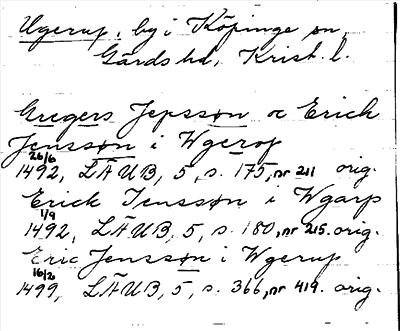 Ugerup, by i Köpinge sn,
Gärds hd, Krist. l.
Gregers Jepssøn oc Erick
Jenssøn i Wgerop
26/6
1492, LÄUB, 5, s. 175, nr 211 orig.
Erick Jenssøn i Wgarp
1/9
1492, LÄUB, 5, s. 180, nr 215. orig.
Eric Jenssøn i Wgerup
16/2
1499, LÄUB, 5, s. 366, nr 419. orig.